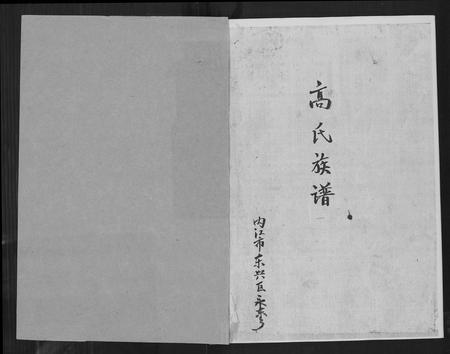 高氏族谱
内江市东兴区永